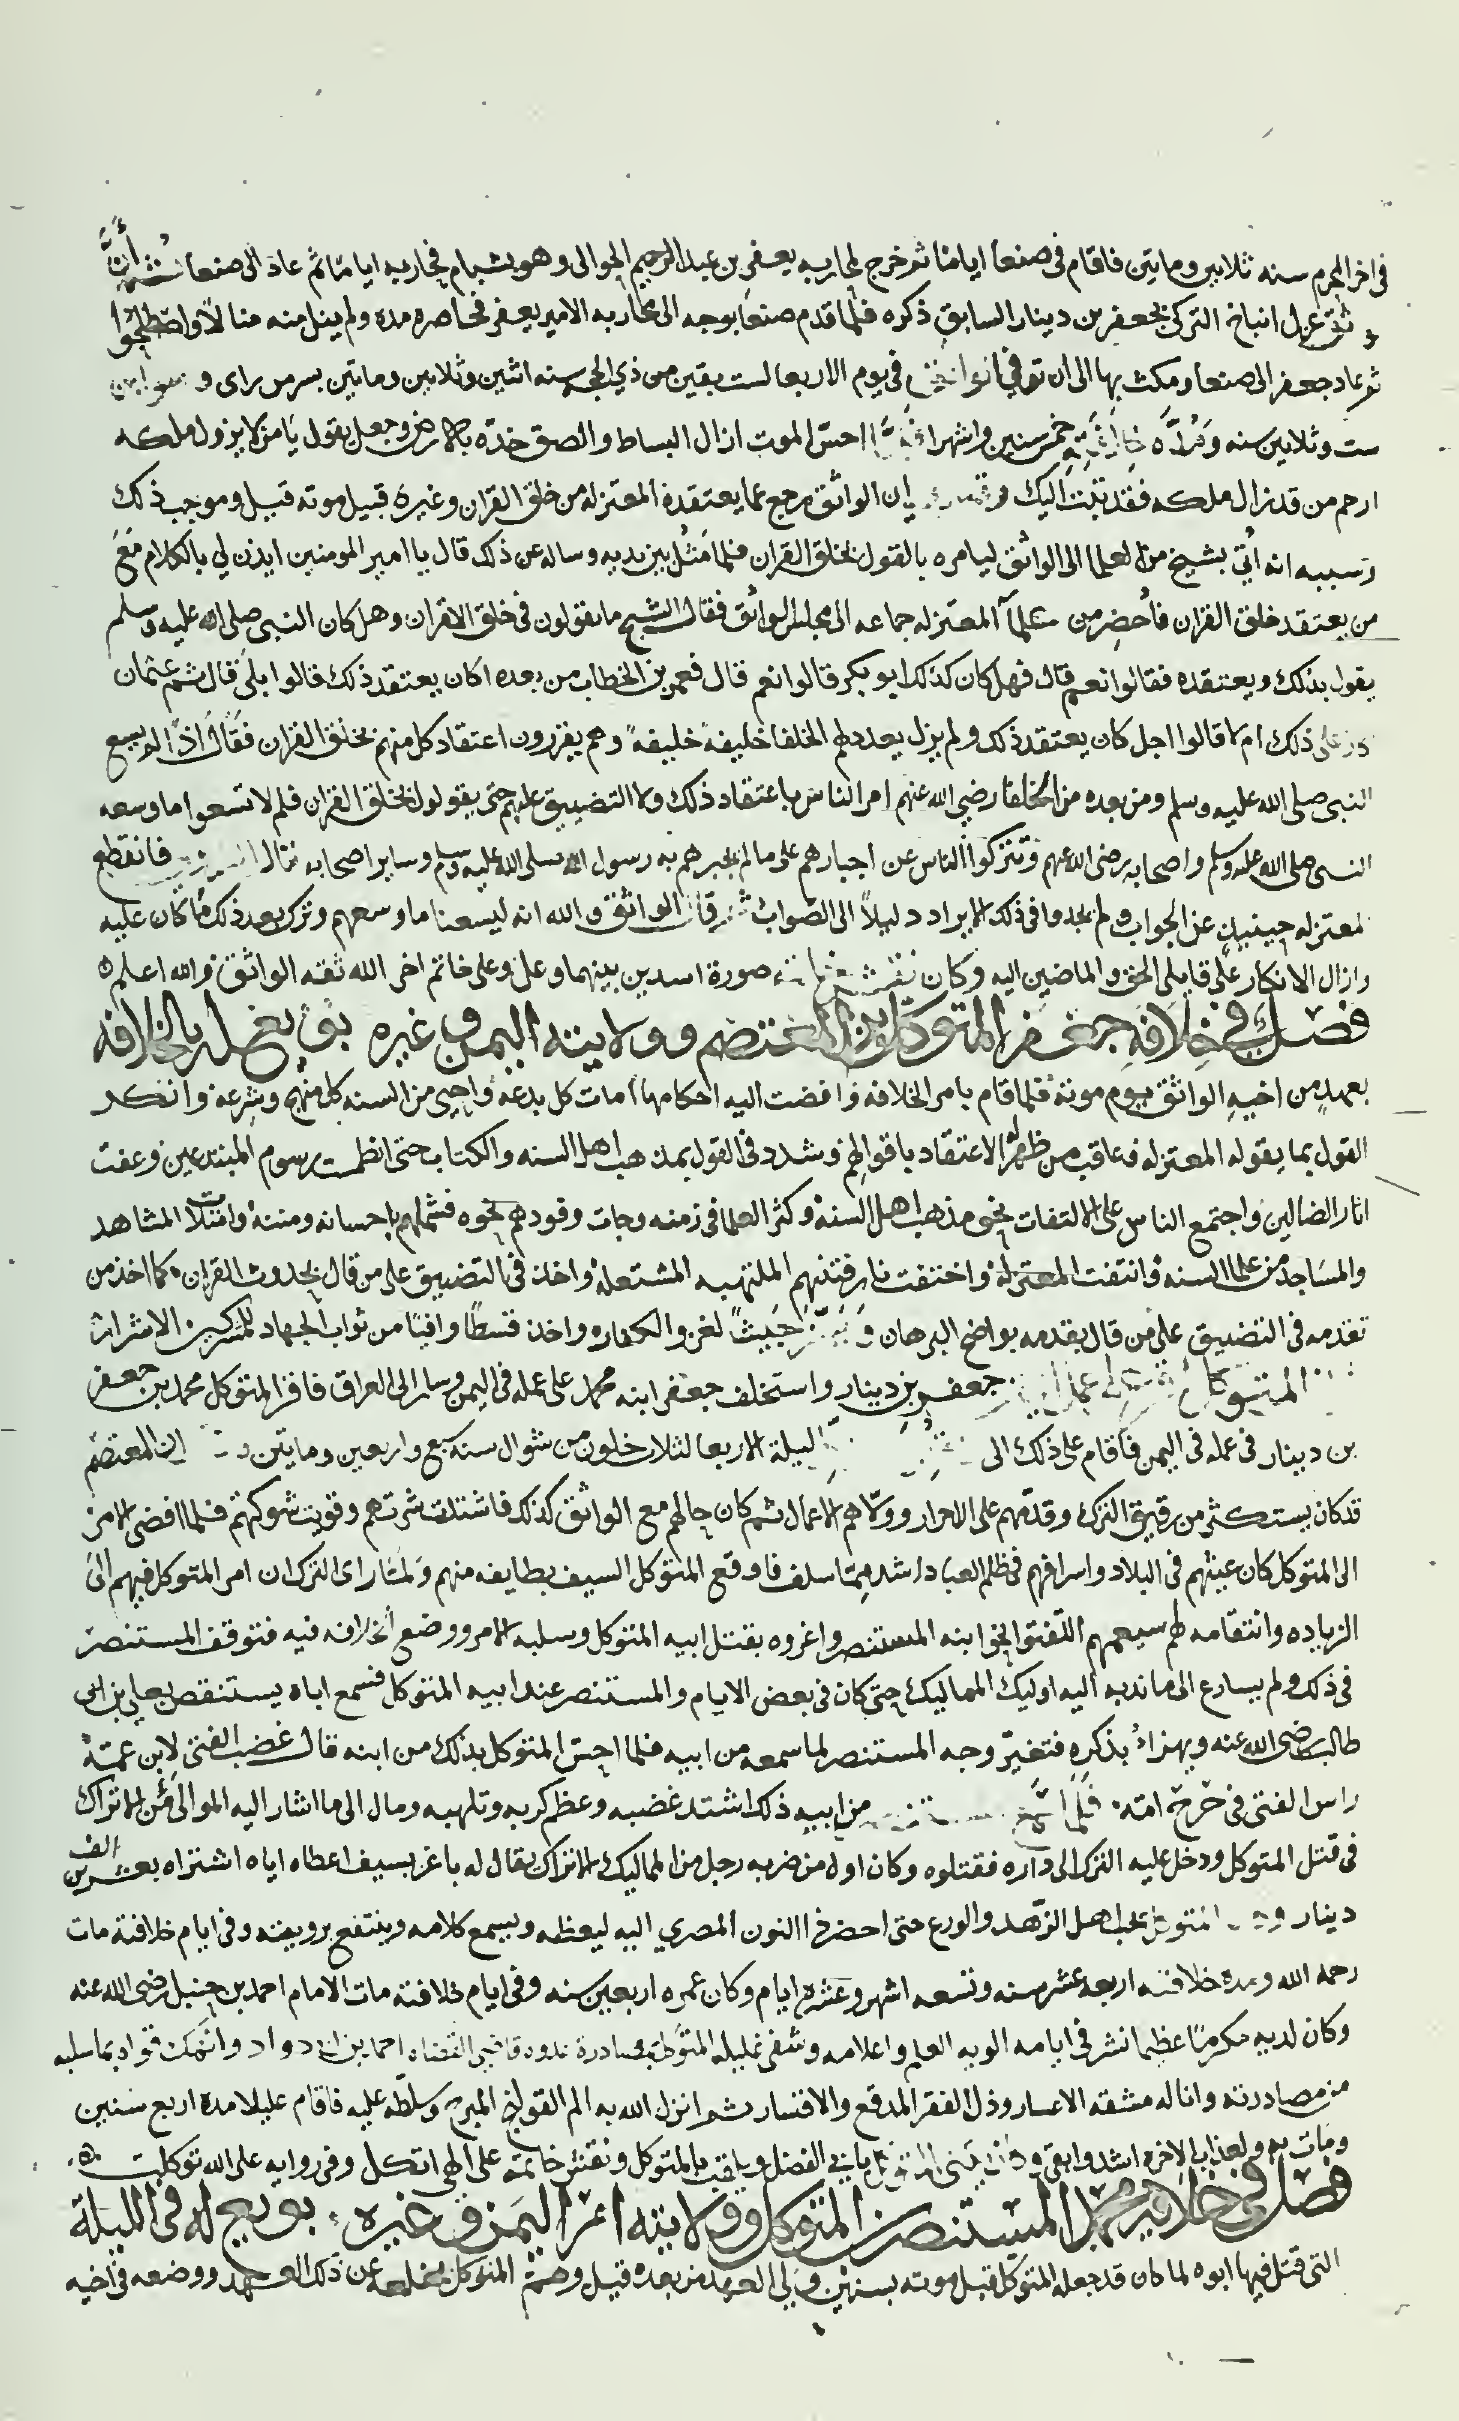 في اخر المحرم سنه ثلاثين ومايتين فاقام في صنعا اياما ثم خرج لمحاربه يعفر بن عبد الرحيم الحوالى وهو بشبام فحاربه اياما ثم عاد الى صنعا
عزل ايتاخ التركى بجعفر بن دينار السابق ذكره فلما قدم صنعا توجه الى محاربه الامير يعفر فحاصره مده ولم ينل منه منالا واصطلحوا
ثم عاد جعفر الى صنعا ومكث بها الى ان توفي الواثق في يوم الاربعا لست بقين من ذي الحجه سنه اثنين وثلاثين ومايتين بسر من راى
ست وثلاثين سنه خمس سنين واشهرا احس الموت ازال البساط والصق خده بالارض وجعل يقول يا من لا يزول ملكه
ارحم من قد زال ملكه فقد تبت اليك ان الواثق رجع عما يعتقده المعتزله من خلق القران وغيره قبيل موته قيل وموجب ذلك
وسببه انه اُتي بشيخ من العلما الى الواثق ليامره بالقول بخلق القران فلما مَثُل بين يديه وساله عن ذلك قال يا امير المومنين ايذن لي بالكلام مع
من يعتقد خلق القران فاُحضر من علمآ المعتزله جماعه الى مجلس الواثق فقال الشيخ ما تقولون في خلق القران وهل كان النبى صلى الله عليه وسلم
يقول بذلك ويعتقده فقالوا نعم قال فهل كان كذلك ابو بكر قالوا نعم قال فعمر بن الخطاب من بعده اكان يعتقد ذلك قالوا بلى قال ثم عثمان
ذلك ام لا قالوا اجل كان يعتقد ذلك ولم يزل يعدد لهم الخلفا خليفةً خليفةً وهم يقررون اعتقاد كل منهم بخلق القران فقال اذًا لم يسع
النبى صلى الله عليه وسلم ومن بعده من الخلفا رضي الله عنهم امر الناس باعتقاد ذلك ولا التضييق عليهم حتى يقولوا بخلق القران فلم لا تسعوا ما وسعه
النبى صلى الله عليه وسلم واصحابه رضى الله عنهم وتتركوا الناس عن اجبارهم على ما لم يجبرهم به رسول الله صلى الله عليه وسلم وساير اصحابه فانقطع
المعتزله حينيذٍ عن الجواب ولم يجدوا في ذلك الايراد دليلاً الى الصواب قال الواثق والله انه ليسعنا ما وسعهم وترك بعد ذلك ما كان عليه
وازال الانكار على قايلى الحق والماضين اليه وكان نقش خاتمه صورة اسدين بينهما وعل وعلى خاتم اخر الله ثقه الواثق والله اعلم
فصل في خلافة جعفر المتوكل بن المعتصم وولايته اليمن وغيره بويع له بالخلافه
بعهدٍ من اخيهِ الواثق يوم موته فلما قام بامر الخلافه وافضت اليه احكامها امات كل بدعه واحيى من السنه كل منهج وشرعه وانكر
القول بما يقوله المعتزله فعاقب من ظهر له الاعتقاد باقوالهم وشدد في القول بمذهب اهل السنه والكتاب حتى انطمست رسوم المبتدعين وعفت
اثار الضالين واجتمع الناس على الالتفات نحو مذهب اهل السنه وكثر العلما في زمنه وجات وفودهم نحوه فشملهم باحسانه ومننه وامتلات المشاهد
والمساجد من علما السنه وانتفت المعتزله واختفت نار فتنتهم الملتهبه المشتعله واخذ في التضييق على من قال بحدوث القران كما اخذ من
تقدمه في التضييق على من قال بقدمه بواضح البرهان جيشًا لغزو الكفار واخذ قسطًا وافيا من ثواب الجهاد للمشركين الاشرار
المتوكل جعفر بن دينار واستخلف جعفر ابنه محمد على عمله في اليمن وسار الى العراق فاقر المتوكل محمد بن جعفر
بن دينار في عمله في اليمن فاقام على ذلك الى ليلة الاربعا لثلاث خلون من شوال سنه سبع واربعين ومايتين ان المعتصم
قد كان يستكثر من رقيق الترك وقدمهم على الاحرار وولاهم الاعمال ثم كان حالهم مع الواثق كذلك فاشتدت شرتهم وقويت شوكتهم فلما افضى الامر
الى المتوكل كان عيثهم في البلاد واسرافهم في ظلم العباد اشد مما سلف فاوقع المتوكل السيف بطايفه منهم ولما راى الترك ان امر المتوكل فيهم الى
الزياده وانتقامه لهم التفتوا نحو ابنه المستنصر واغروه بقتل ابيه المتوكل وسلبه الامر ووضع الخلافه فيه فتوقف المستنصر
في ذلك ولم يسارع الى ما ندبه اليه اوليك المماليك حتى كان في بعض الايام والمستنصر عند ابيه المتوكل فسمع اباه يستنقص بعلي بن ابى
طالب رضى الله عنه ويهزاُ بذكره فتغير وجه المستنصر لما سمعه من ابيه فلما احس المتوكل بذلك من ابنه قال غضب الفتى لابن عمته
راس الفتى في حَرِ امه من ابيه ذلك اشتد غضبه وعظم كربه وتلهبه ومال الى ما اشار اليه الموالى من الاتراك
في قتل المتوكل ودخل عليه الترك الى داره فقتلوه وكان اول من ضربه رجل من المماليك الاتراك يقال له باغر بسيف اعطاه اياه اشتراه بعشرين الف
دينار المتوكل يحب اهل الزهد والورع حتى احضر ذا النون المصري اليه ليعظه ويسمع كلامه وينتفع برويته وفي ايام خلافته مات
رحمه الله ومده خلافته اربعه عشر سنه وتسعه اشهر وعشرة ايام وكان عمره اربعين سنه وفي ايام خلافته مات الامام احمد بن حنبل رضى الله عنه
وكان لديه مكرمًا عظيما نشر في ايامه الويه العلم واعلامه وشفى غليله المتوكل بمصادرة عدوه قاضي القضاه احمد بن ابي دواد بما سلبه
من مصادرته واناله مشقه الاعسار وذل الفقر المدقع والاقتسار ثم انزل الله به الم القولنج المبرح وسلطه عليه فاقام عليلا مدة اربع سنين
ومات به ولعذاب الاخره اشد وابقى بابي الفضل ويلقب بالمتوكل ونقش خاتمه على الهي اتكل وفي روايه على الله توكلت
فصل في خلافة محمد المستنصر بن المتوكل وولايته امر اليمن وغيره بويع له في الليلة
التى قتل فيها ابوه لما كان قد جعله المتوكل قبل موته بسنتين ولي العهد من بعده قيل وهَمَّ المتوكل بخلعه عن ذلك العهد ووضعه في اخيه